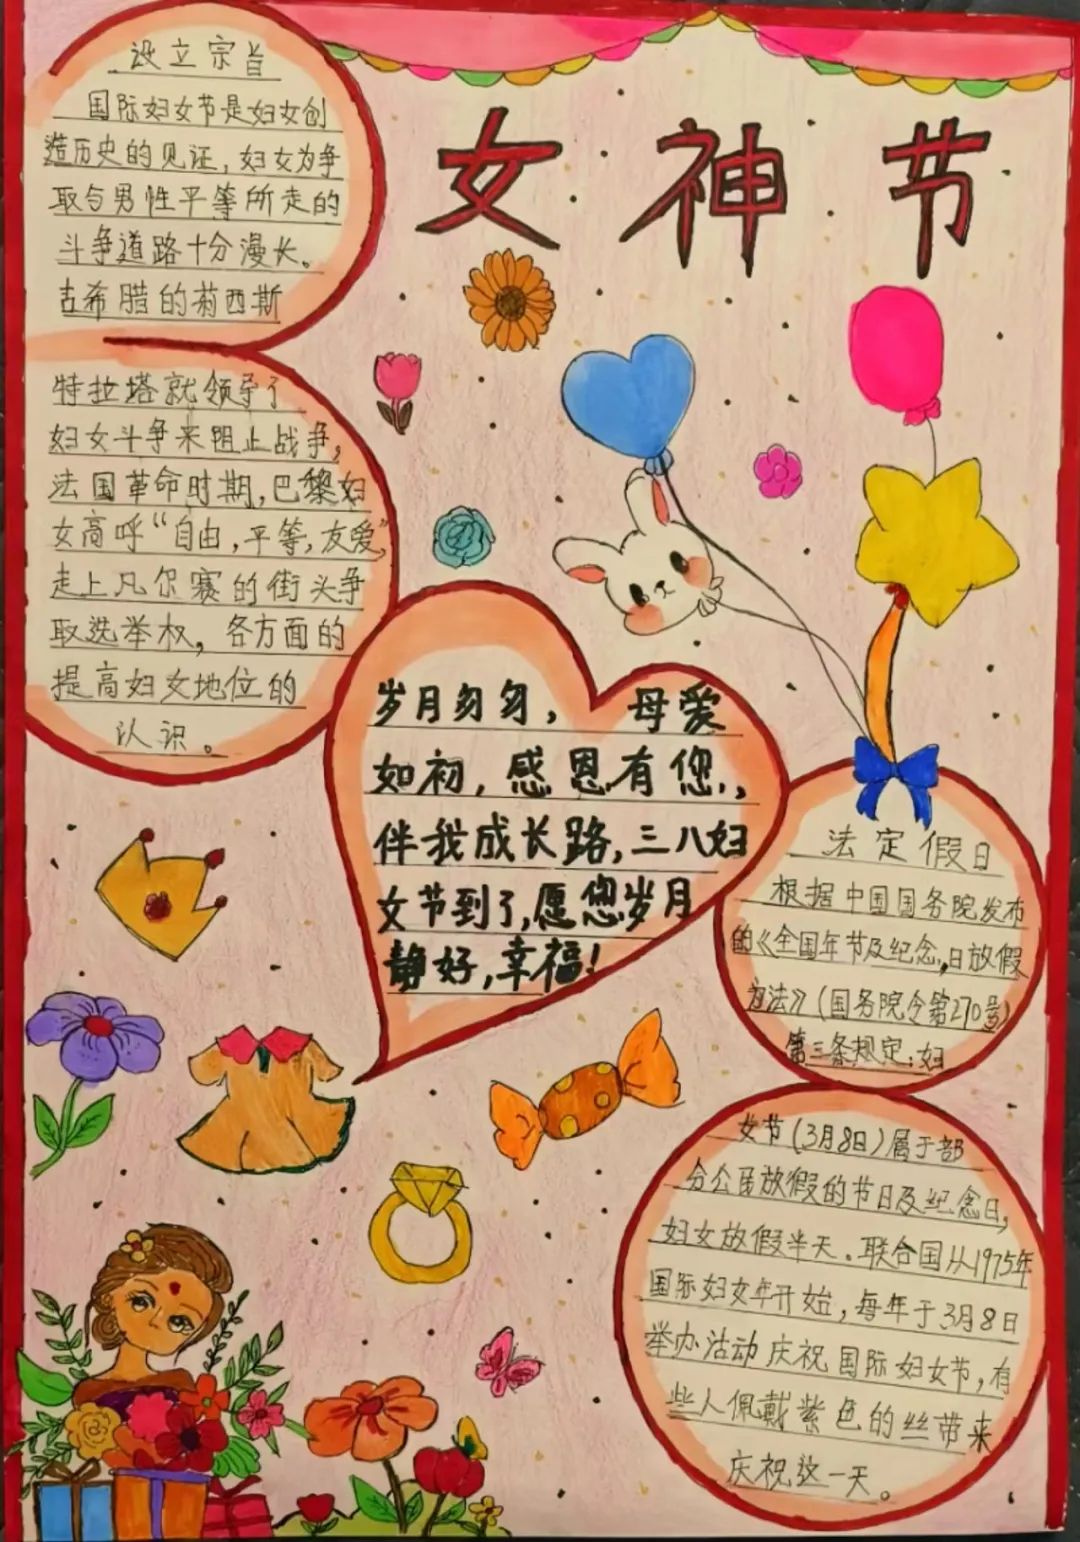 女神节
设立宗旨
国际妇女节是妇女创
造历史的见证，妇女为争
取与男性平等所走的
斗争道路十分漫长。
古希腊的莉西斯
特拉塔就领导了
妇女斗争来阻止战争，
法国革命时期，巴黎妇
女高呼“自由，平等，友爱”
走上凡尔赛的街头争
取选举权，各方面的
提高妇女地位的
认识。
岁月匆匆，母爱
如初，感恩有您，
伴我成长路，三八妇
女节到了，愿您岁月
静好，幸福！
法定假日
根据中国国务院发布
的《全国年节及纪念日放假
办法》（国务院令第270号）
第三条规定：妇
女节（3月8日）属于部
分公民放假的节日及纪念日，
妇女放假半天。联合国从1975年
国际妇女年开始，每年于3月8日
举办活动庆祝国际妇女节，有
些人佩戴紫色的丝带来
庆祝这一天。